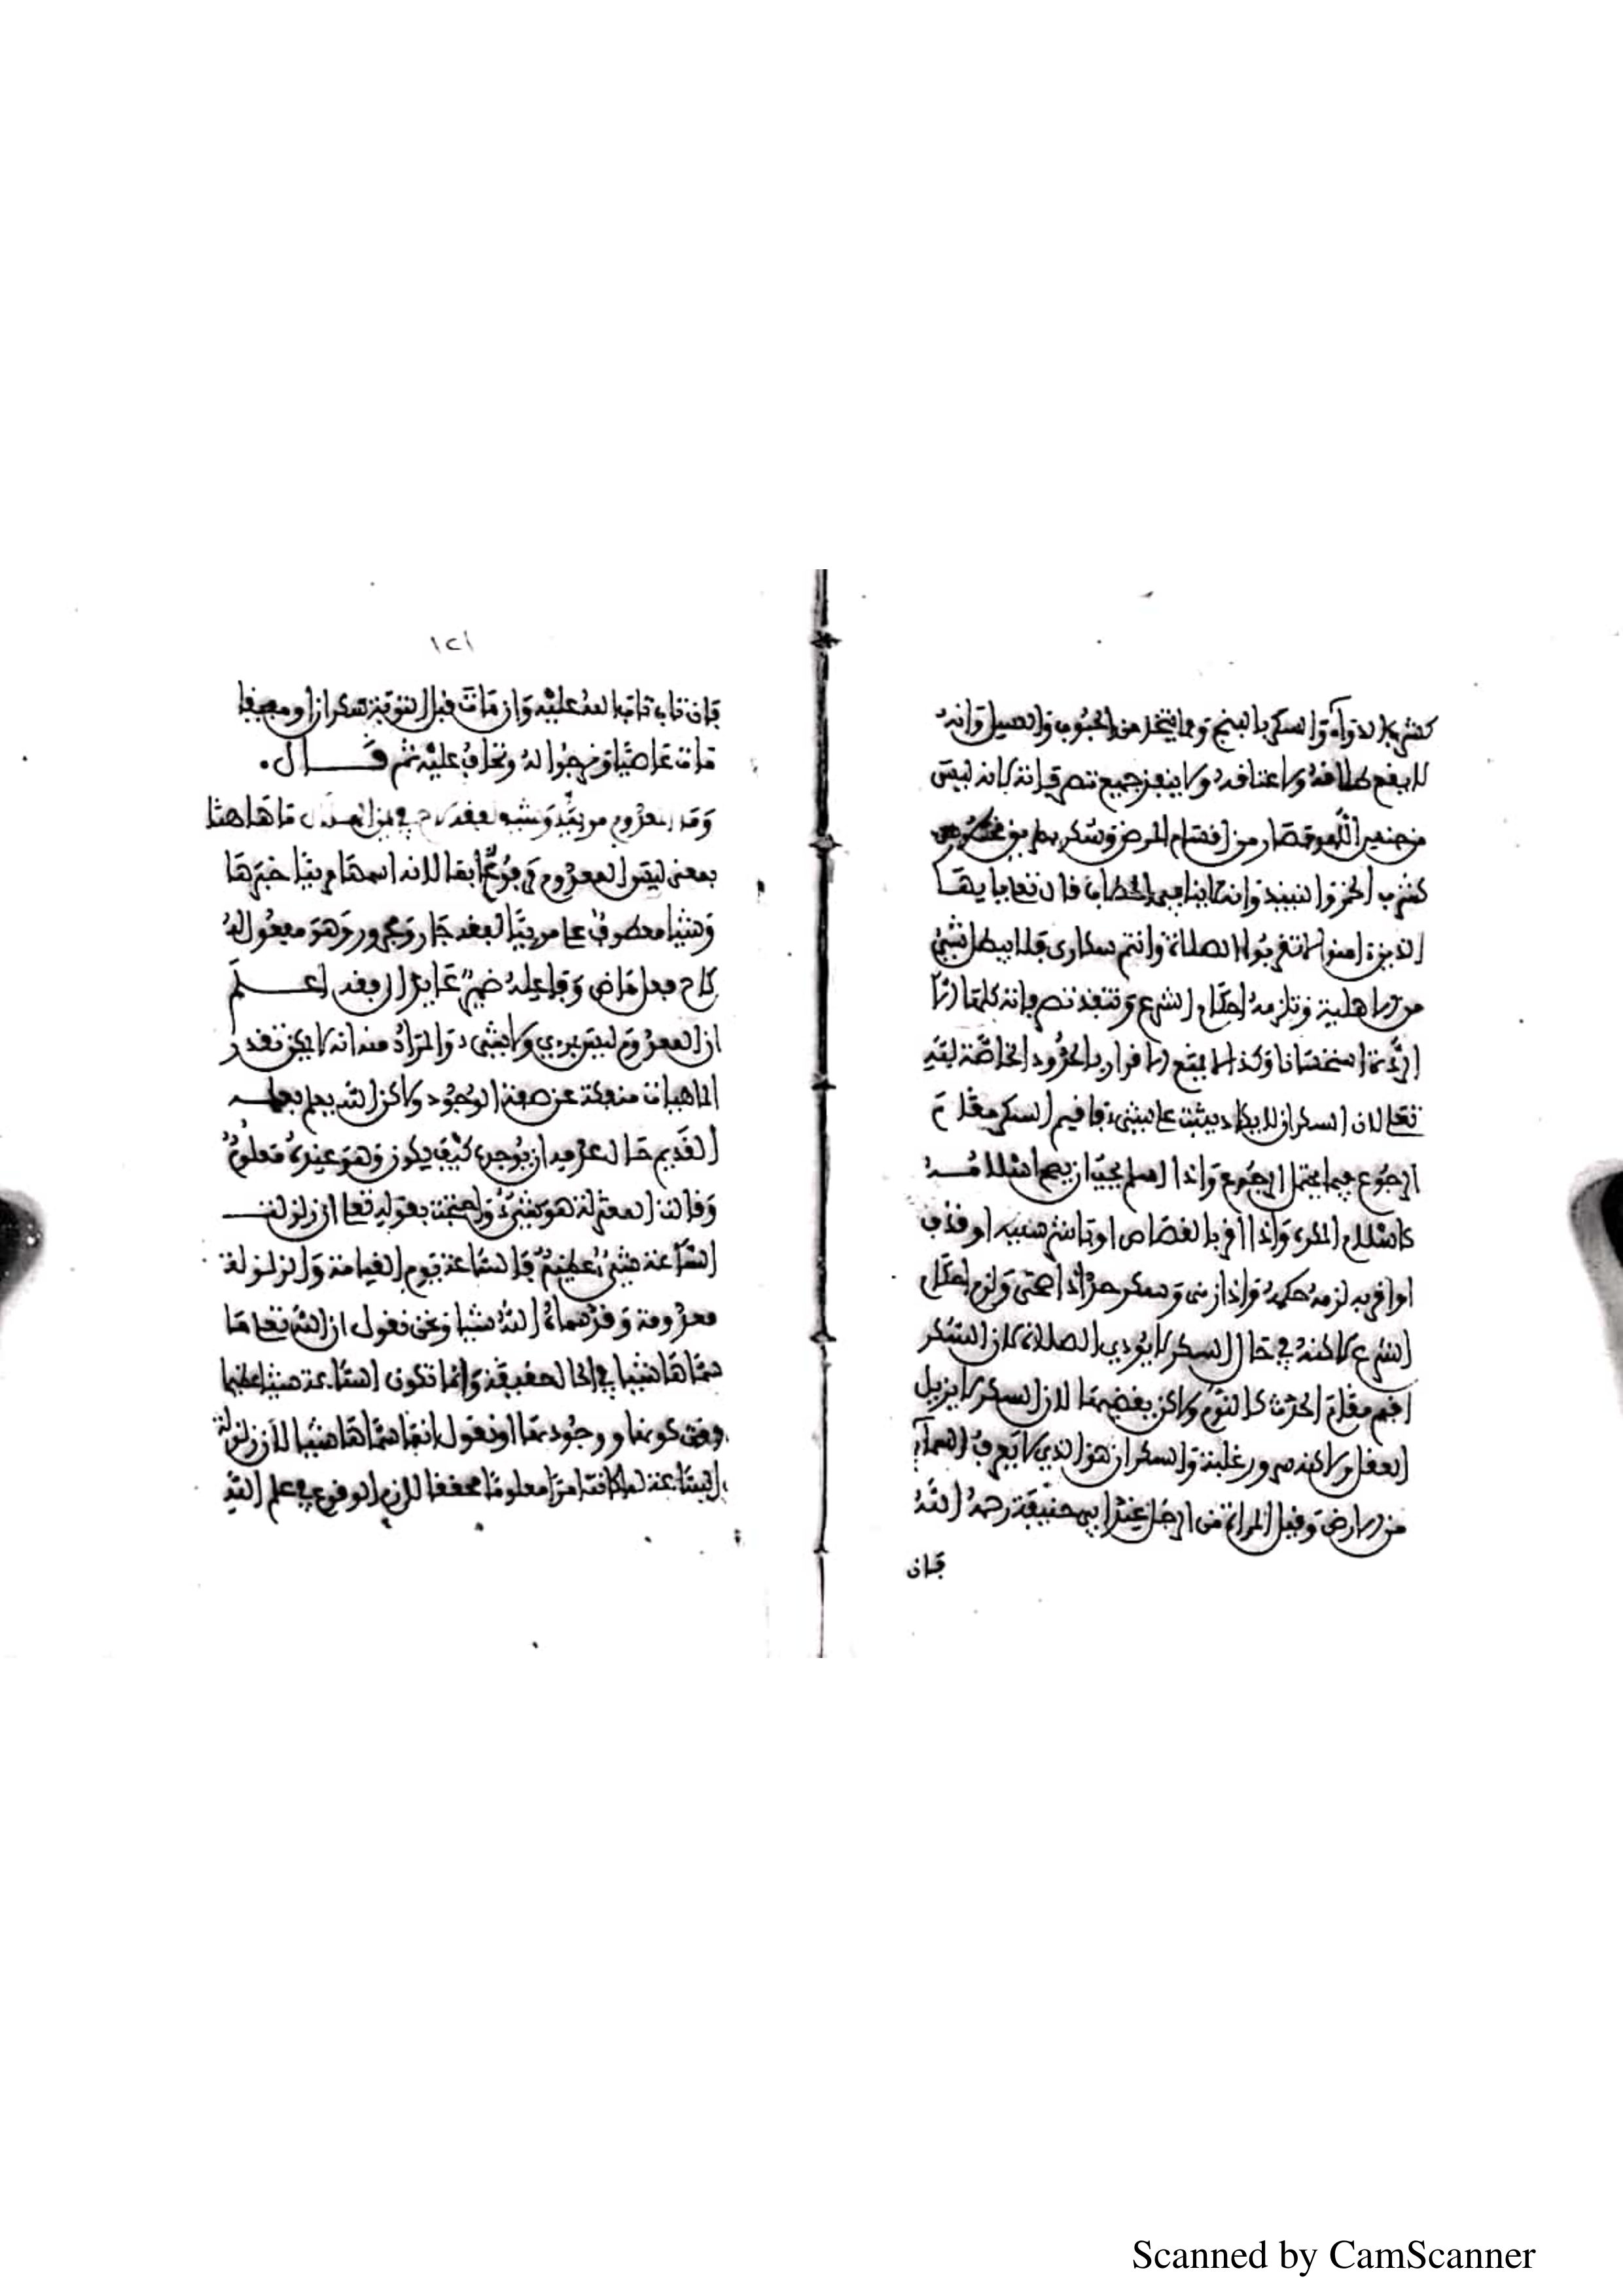 كشرب الدواء والسكر بالبنج ومما يتخذ من الحبوب والعسل وانه
لا يقع طلاقه ولا اعتاقه ولا ينفذ جميع تصرفاته لانه ليس
من جنس اللهو فصار من اقسام المرض وسكر بطريق محظور
كشرب الخمر والنبيذ وانه لا ينافي الخطاب قال تعالى يا يها
الذين امنوا لا تقربوا الصلاة وانتم سكارى فلا يبطل شيئ
من الاهلية وتلزمه احكام الشرع وتنفذ تصرفاته كلها الا
الردة استحسانا وكذا لا يقع الاقرار بالحدود الخالصة لله
تعالى لان السكران لا يكاد يثبت على شيء فاقيم السكر مقام
الرجوع فيما يحتمل الرجوع واذا اسلم يجب ان يصح اسلامه
كاسلام المكره واذا اقر بالقصاص او باشر سببه او قذف
او اقر به لزمه حكمه واذا زنى وسكر حد اذا صحى ولزم احكام
الشرع كلها لكنه في حال السكر لا يؤدي الصلاة لان السكر
اقيم مقام الحدث كالنوم ولاكن يقضيها لان السكر لا يزيل
العقل ولاكنه سرور غلبة والسكران هو الذي لا يعرف السماء
من الارض وقيل المراة من الرجل عند ابي حنيفة رحمه الله
فان
١٢١
فان تاب تاب الله عليه وان مات قبل التوبة سكرانا ومصفا
مات عاصيا ونرجوا له ونخاف عليه ثم قال
وما المعدوم مرئيا وشيئا لفقه لاح في يمن الهلال ما هاهنا
بمعنى ليس المعدوم مرفوع ايضا لانه اسمها مرئيا خبرها
وشيئا معطوف على مرئيا لفقه جار ومجرور وهو مفعول له
لاح فعل ماض وفاعله ضمير عايد الى فقه اعلم
ان المعدوم ليس بمرءي ولا بشيء والمراد منه انه لا يكن تقدر
الماهيات منفكة عن صفة الوجود ولاكن الله يعلم بعلمه
القديم حال عدمه ان يوجده كيف يكون وهو عنده معلوم
وقالت المعتزلة هو شيء واحتجت بقوله تعالى ان زلزلة
الساعة شيء عظيم فالساعة يوم القيامة والزلزلة
معدومة وقد سماه الله شيئا ونحن نقول ان الله تعالى ما
سماها شيئا في الحال حقيقة وانما تكون الساعة شيئا عظيما
وقت كونها ووجودها او نقول انما سماها شيئا لان زلزلة
الساعة لما كانت امرا معلوما محققا لازم الوقوع في علم الله
Scanned by CamScanner